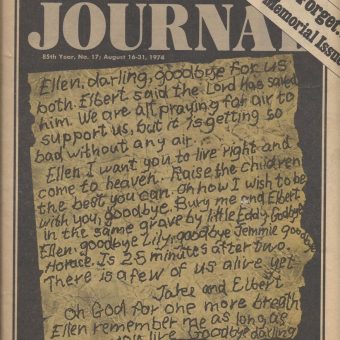 JOURNAL
85th Year, No. 17; August 16-31, 1974
Forget.
Memorial Issue
Ellen, darling, goodbye for us
both. Elbert said the Lord has saved
him. We are all praying for air to
support us, but it is getting so
bad without any air.
Ellen I want you to live right and
come to heaven. Raise the children
the best you can. Oh how I wish to be
with you, goodbye. Bury me and Elbert
in the same grave by little Eddy. Godbye
Ellen, goodbye Lily, goodbye Jemmie, goodbye
Horace. Is 25 minutes after two.
There is a few of us alive yet
Jake and Elbert
Oh God for one more breath
Ellen remember me as long as
you live Goodbye darling